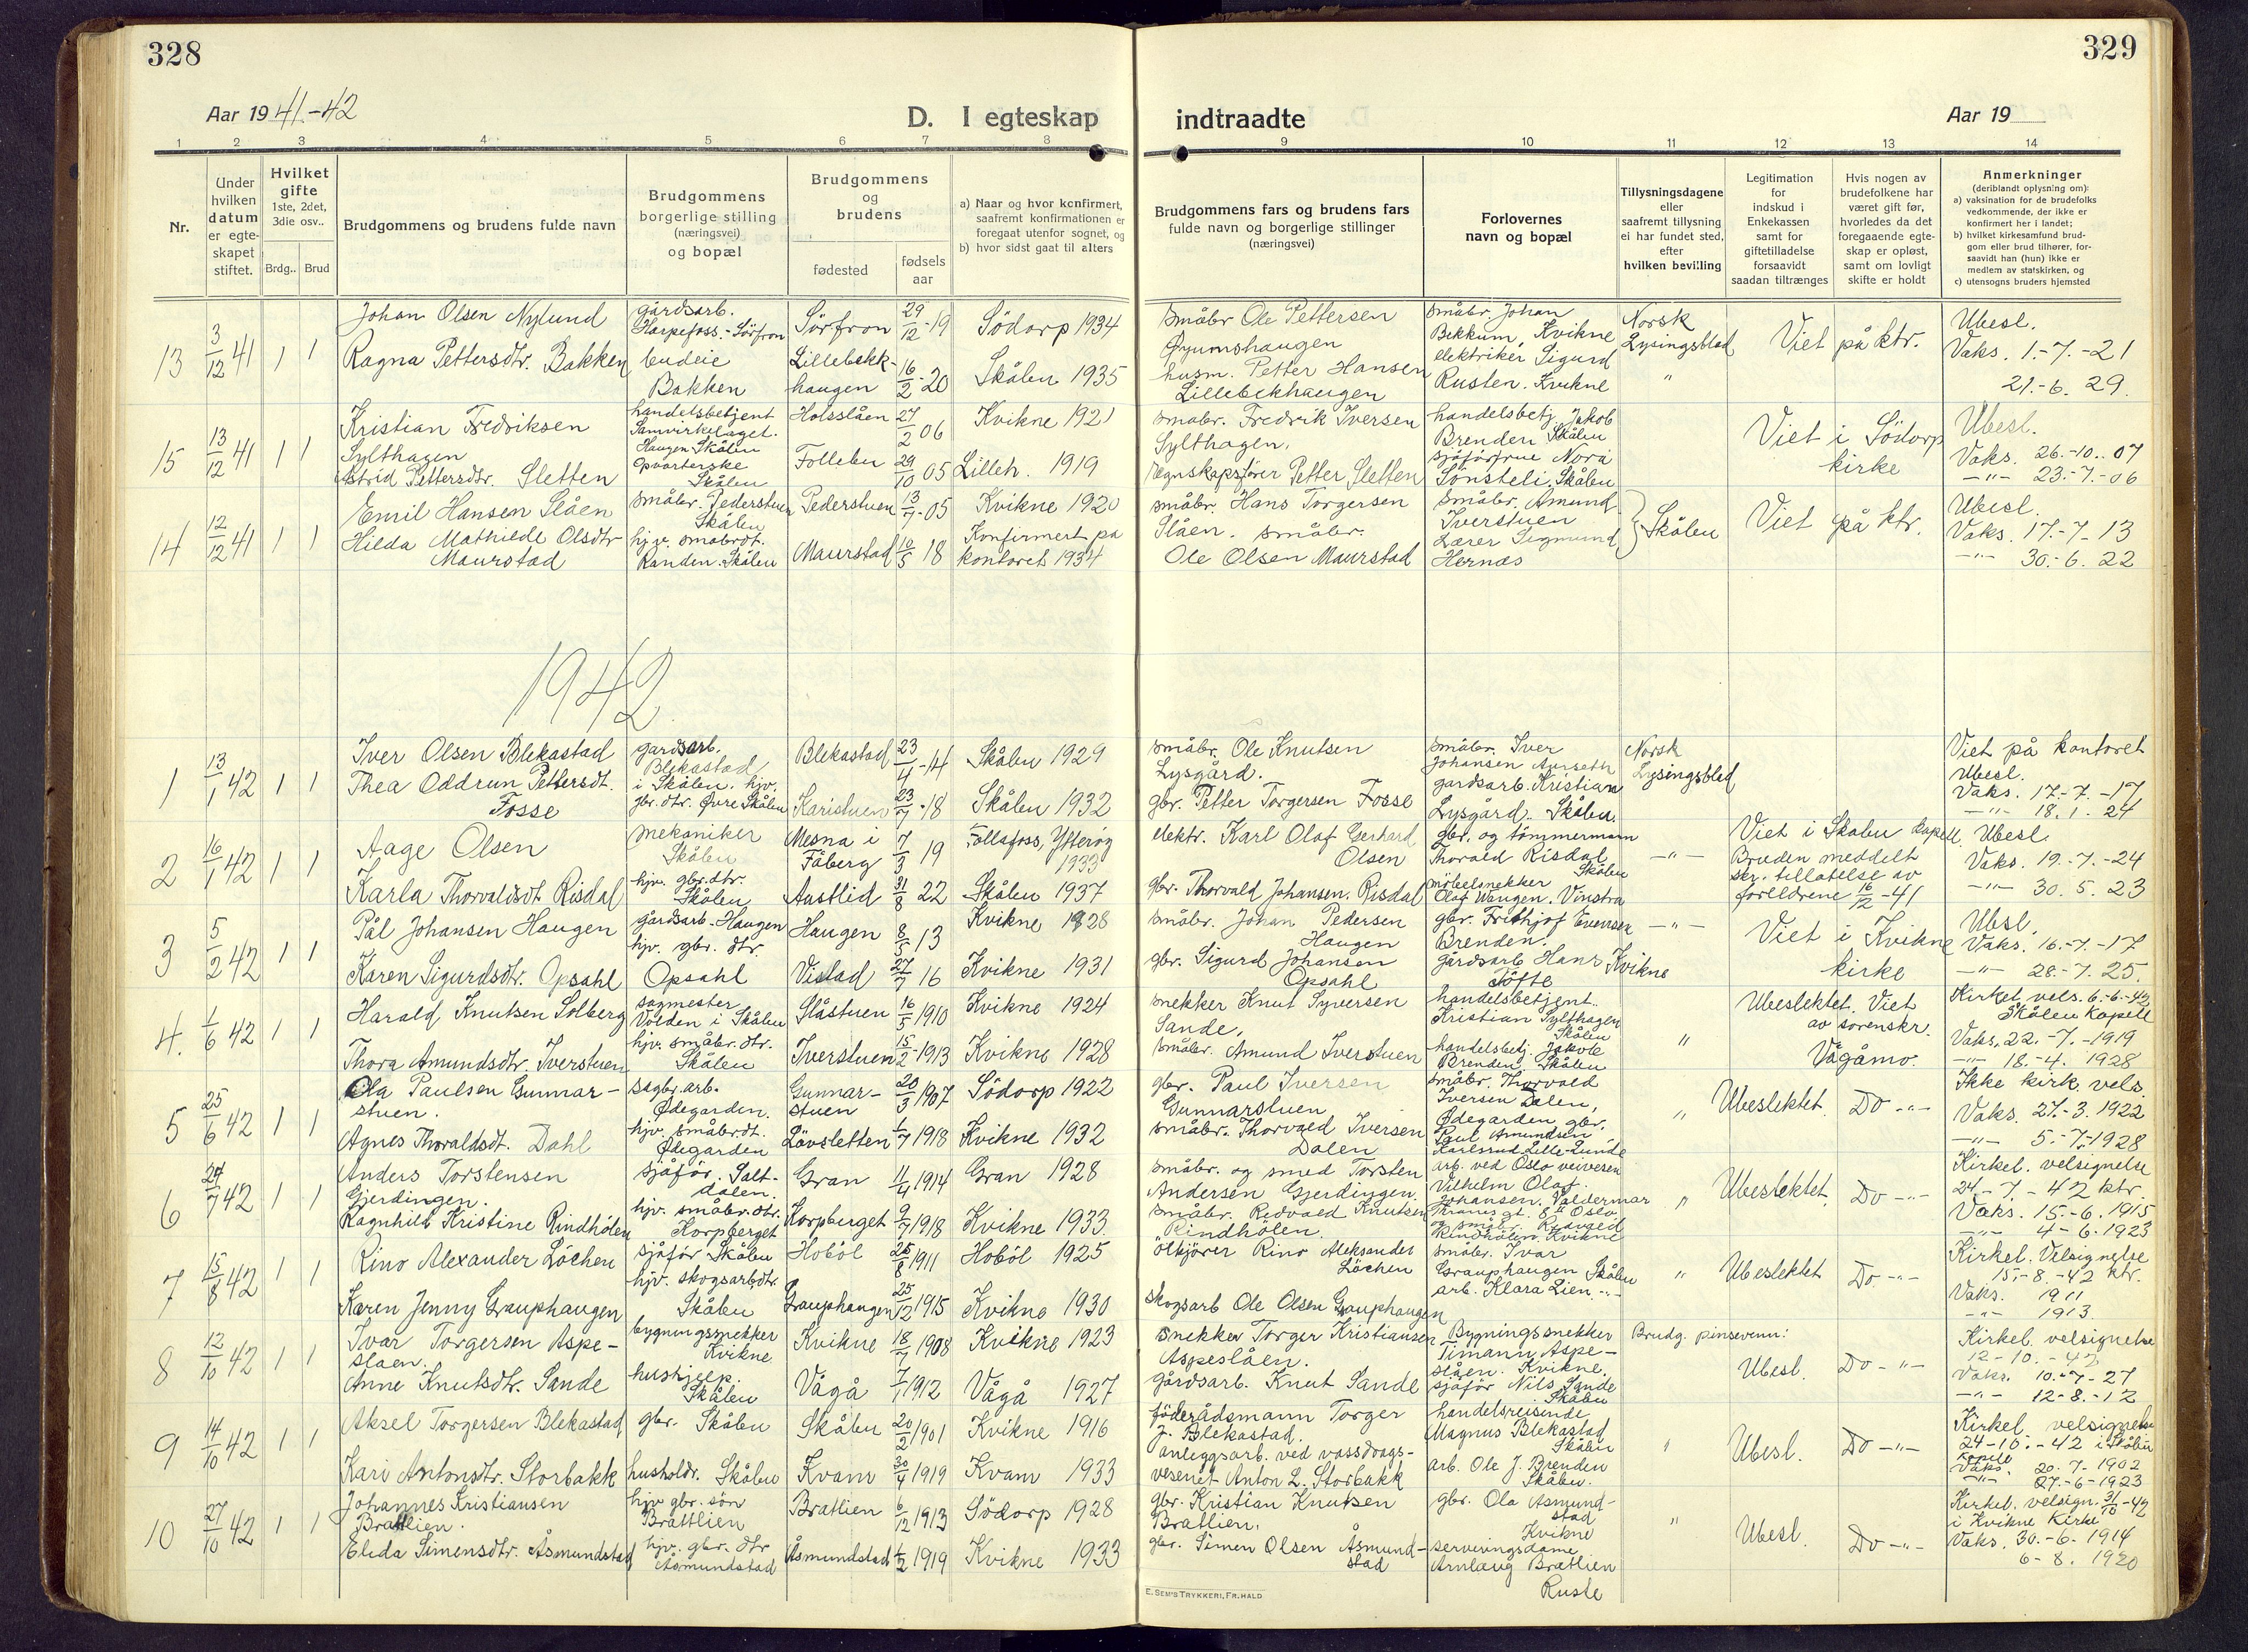 328
Aar 1941.-42
D. I egteskap
1 2 3 4 5 6 7 8
Nr.
Under hvilken datum er egte-skapet stiftet.
Hvilket gifte
1ste, 2det, 3die osv..
Brdg.. Brud
Brudgommens og brudens fulde navn
Brudgommens borgerlige stilling (næringsvei) og bopæl
Brudgommens og brudens
fødested
fødsels aar
a) Naar og hvor konfirmert, saafremt konfirmationen er foregaat utenfor sognet, og
b) hvor sidst gaat til alters
13 3/12 41 1 1
Johan Olsen Nylund gårdsarb. Harpefoss.-Sörfron Sörfron 29/12-19 Södorp 1934
Ragna Pettersdtr. Bakken budeie Bakken Lillebekk-haugen 16/2-20 Skåbu 1935
15 13/12 41 1 1
Kristian Fredriksen Sylthagen handelsbetjent Samvirkelaget. Haugen Skåbu Holsslåen 27/2 06 Kvikne 1921
Astrid Pettersdtr. Sletten Opvarterske Skåbu Follebu 29/10 05 Lilleh. 1919
14 12/12 41 1 1
Emil Hansen Slåen småbr. Pederstuen Skåbu Pederstuen 13/7-05 Kvikne 1920
Hilda Mathilde Olsdtr Maurstad hjv. småbrdt. Randen. Skåbu Maurstad 10/5 18 Konfirmert på kontoret 1934
1942
1 13/1 42 1 1
Iver Olsen Blekastad gardsarb. Blekastad i Skåbu. Blekastad 23/4-14 Skåbu 1929
Thea Oddrun Pettersdt. Fosse hjv. gbr. dtr. Øvre Skåbu Karistuen 23/7-18 Skåbu 1932
2 16/1 42 1 1
Aage Olsen mekaniker Skåbu Mesna i Fåberg 7/3 19 Follafoss, Ytterøy 1933
Karla Thorvaldsdt Risdal hjv. gbr. dtr. Skåbu Austlid 31/8 22 Skåbu 1937
3 5/2 42 1 1
Pål Johansen Haugen gårdsarb. Haugen Haugen 8/5 13 Kvikne 1928
Karen Sigurdsdtr. Opsahl hjv. gbr. dtr. Opsahl Vistad 27/7 16 Kvikne 1931
4. 1/6 42 1 1
Harald Knutsen Solberg sagmester Volden i Skåbu Slåstuen 16/5 1910 Kvikne 1924
Thora Amundsdtr. Iverstuen hjv. småbr. dtr. Skåbu Iverstuen 15/2-1913 Kvikne 1928
5 25/6 42 1 1
Ola Paulsen Gunnar-stuen. sagbr. arb. Ødegarden. Gunnar-stuen 20/3 1907 Södorp 1922
Agnes Thoraldsdt. Dahl hjv. småbrdt. Ødegarden Lövsletten 1/7 1918 Kvikne 1932
6 24/7 42 1 1
Anders Torstensen Gjerdingen. sjåför. Salt-dalen. Gran 11/4 1914 Gran 1928
Ragnhild Kristine Rindhölen hjv. småbr. dtr. Korpberget Korpberget 9/7 1918 Kvikne 1933
7 15/8 42 1 1
Rino Alexander Löchen sjåför Skåbu Hoböl 26/8 1911 Hoböl 1925
Karen Jenny Grauphaugen hjv. skogsarb. dtr. Skåbu Grauphaugen 25/12 1915 Kvikne 1930
8 12/10 42 1 1
Ivar Torgersen Aspe-slåen. bygningssnekker Kvikne Kvikne 18/7 1908 Kvikne 1923
Anne Knutsdtr. Sande hushjelp. Skåbu Vågå 7/1 1912 Vågå 1927
9 14/10 42 1 1
Aksel Torgersen Blekastad gbr. Skåbu Skåbu 20/2 1901 Kvikne 1916
Kari Antonsdtr. Storbakk husholdr. Skåbu Kvam 30/4 1919 Kvam 1933
10 27/10 42 1 1
Johannes Kristiansen Brattlien. hjv gbr. sön Brattlien Brattlien 6/12 1913 Södorp 1928
Elida Simensdtr. Åsmundstad hjv. gbr. dtr Åsmundstad Åsmundstad 1/2 1919 Kvikne 1933
329
indtraadte
Aar 19
9 10 11 12 13 14
Brudgommens fars og brudens fars fulde navn og borgerlige stillinger (næringsvei)
Forlovernes navn og bopæl
Tillysningsdagene eller saafremt tillysning ei har fundet sted, efter hvilken bevilling
Legitimation for indskud i Enkekassen samt for giftetilladelse forsaavidt saadan tiltrænges
Hvis nogen av brudefolkene har været gift før, hvorledes da det foregaaende egte-skap er opløst, samt om lovligt skifte er holdt
Anmerkninger
(deriblandt oplysning om):
a) vaksination for de brudefolks vedkommende, der ikke er konfirmert her i landet;
b) hvilket kirkesamfund brud-gom eller brud tilhører, for-saavidt han (hun) ikke er medlem av statskirken, og
c) utensogns bruders hjemsted
småbr Ole Pettersen småbr. Johan Bekkum, Kvikne Norsk Lysingsblad Viet på ktr. Ubesl. Vaks. 1.-7.-21
husm. Petter Hansen Lillebekkhaugen elektriker Sigurd Rusten. Kvikne " 21.-6. 29.
småbr. Fredrik Iversen Sylthagen. handelsbetj. Jakob Brenden Skåbu Viet i Södorp kirke Ubesl. Vaks. 26.-10. 07
Regnskapsfører Petter Sletten sjåförfrue Nora Sönsteli. Skåbu -"- 23.-7.-06
småbr. Hans Torgersen Slåen. småbr. Amund Iverstuen Skåbu Viet på ktr. Ubesl. Vaks. 17.-7-13
småbr. Ole Olsen Maurstad Lærer Sigmund Hernæs -"- 30.-6. 22
småbr. Ole Knutsen Lysgård. småbr. Iver Johansen Norsk Lysingsblad Viet på kontoret Ubesl. Vaks. 17.-7.-17
gbr. Petter Torgersen Fosse gardsarb. Kristian Lysgård. Skåbu. -"- 18. 1. 24
elektr. Karl Olaf Gerhard Olsen gbr. og tömmermann Thorvald Risdal Skåbu -"- Viet i Skåbu kapell. Bruden meddelt skr. tillatelse av foreldrene 16/12-41 Ubesl. Vaks. 19.-7.-24
gbr. Thorvald Johansen. Risdal möbelsnekker Olaf Wangen. Vinstra -"- 30. 5. 23
småbr. Johan Pedersen Haugen gbr. Frithjof Evensen Brenden. -"- Viet i Kvikne kirke Ubesl. Vaks. 16.-7.-17
gbr. Sigurd Johansen Opsahl gårdsarb Hans Töfte Kvikne -"- 28.-7. 25.
snekker Knut Syversen Sande, handelsbetjent. Kristian Sylthagen Skåbu " Ubeslektet. Viet av sorenskr. Vågåmo. Kirkel. vels. 6.-6.-42 Skåbu kapell Vaks. 22.-7.-1919
småbr. Amund Iverstuen handelsbetj Jakob Brenden. Skåbu -"- 18.-4. 1928
gbr. Paul Iversen Gunnarstuen småbr. Thorvald Iversen Dalen, Ødegarden " Ubeslektet. Do -"- Ikke kirk. vels. Vaks. 27.-3. 1922
småbr. Thorvald Iversen Dalen gbr. Paul Amundsen Karlsrud Lille-Lunde -"- 5.-7.-1928
småbr. og smed Torsten Andersen Gjerdingen. arb. ved Oslo veivesen Vilhelm Olaf Johansen. Valdermar Thranes gt. 8 Oslo " Ubeslektet. Do -"- Kirkel. velsignelse 24-7.-42 ktr. Vaks. 15.-6. 1915
småbr. Redvald Knutsen Rindhölen. og småbr. Redvald Rindhölen. Kvikne -"- 4-6. 1923
ölkjörer Rino Aleksander Löchen småbr. Ivar Grauphaugen Skåbu " Ubeslektet Do -"- Kirkel. Velsignelse 15.-8.-42 ktr. Vaks. 1911
Skogsarb Ole Olsen Grauphaugen arb. Klara Lien -"- -"- 1913
snekker Torger Kristiansen Aspeslåen. Bygningssnekker Timann Aspe-slåen. Kvikne. Brudg. pinsevenn: Ubesl. Do -"- Kirkel. velsignelse 12-10.-42 Vaks. 10.-7-27
gårdsarb. Knut Sande sjåför Nils Sande Skåbu -"- 12-8.-12
föderådsmann Torger J. Blekastad. handelsreisende Magnus Blekastad Skåbu " Ubesl. Do -"- Kirkel. velsignelse 24-10.-42 i Skåbu kapell Vaks. 20.-7. 1902
anleggsarb. ved vassdrags-vesenet Anton L. Storbakk arb. Ole J. Brenden Skåbu. -"- 27.-6-1923
gbr. Kristian Knutsen Brattlien. gbr. Ola Åsmund-stad Kvikne " Ubesl Do -"- Kirkel. velsign. 31/10-42 i Kvikne kirke Vaks. 30.-6. 1914
gbr. Simen Olsen Åsmund-stad serveringsdame Arnlaug Bratlien Ruste 6-8. 1920
E. SEM'S TRYKKERI, FR.HALD